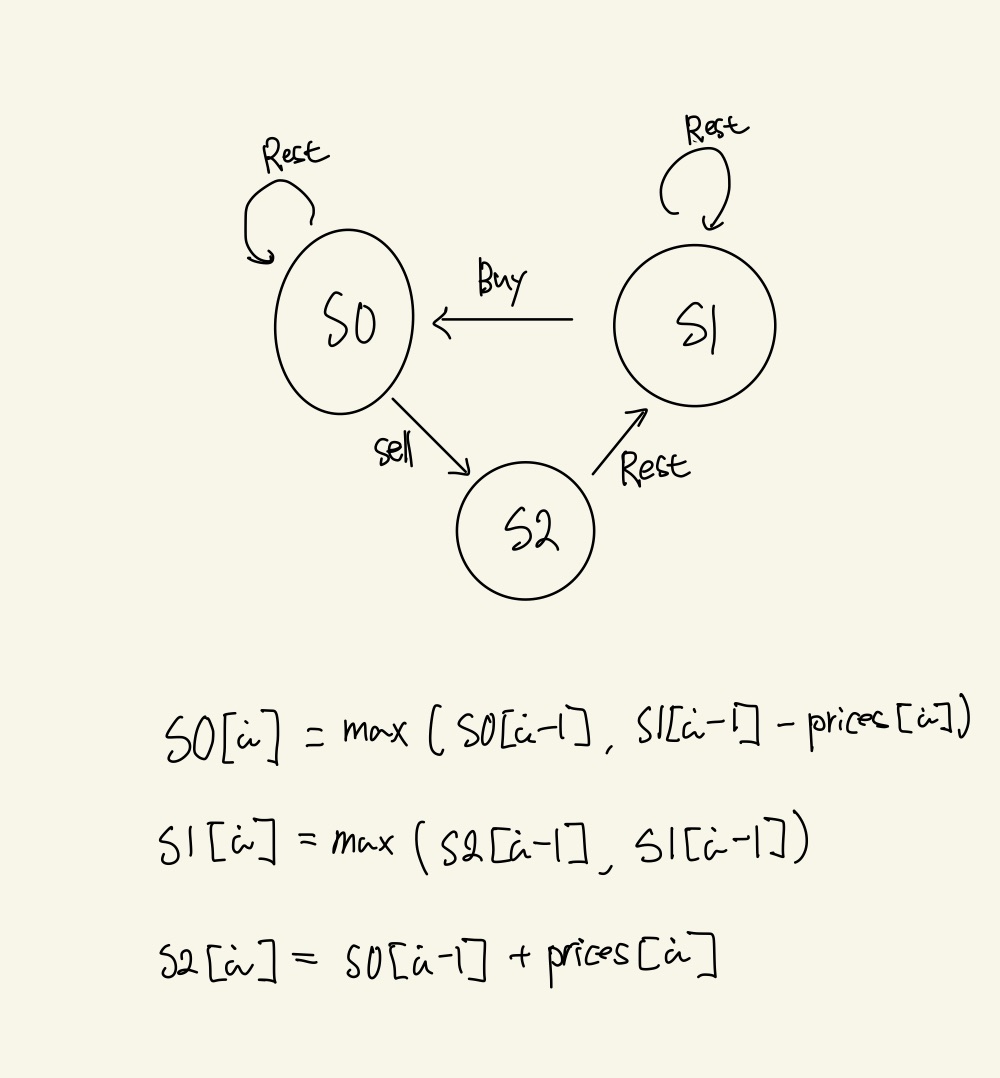 Rest
Rest
Buy
S0
S1
sell
Rest
S2
S0[i] = max (S0[i-1], S1[i-1] - prices[i])
S1[i] = max (S2[i-1], S1[i-1])
S2[i] = S0[i-1] + prices[i]